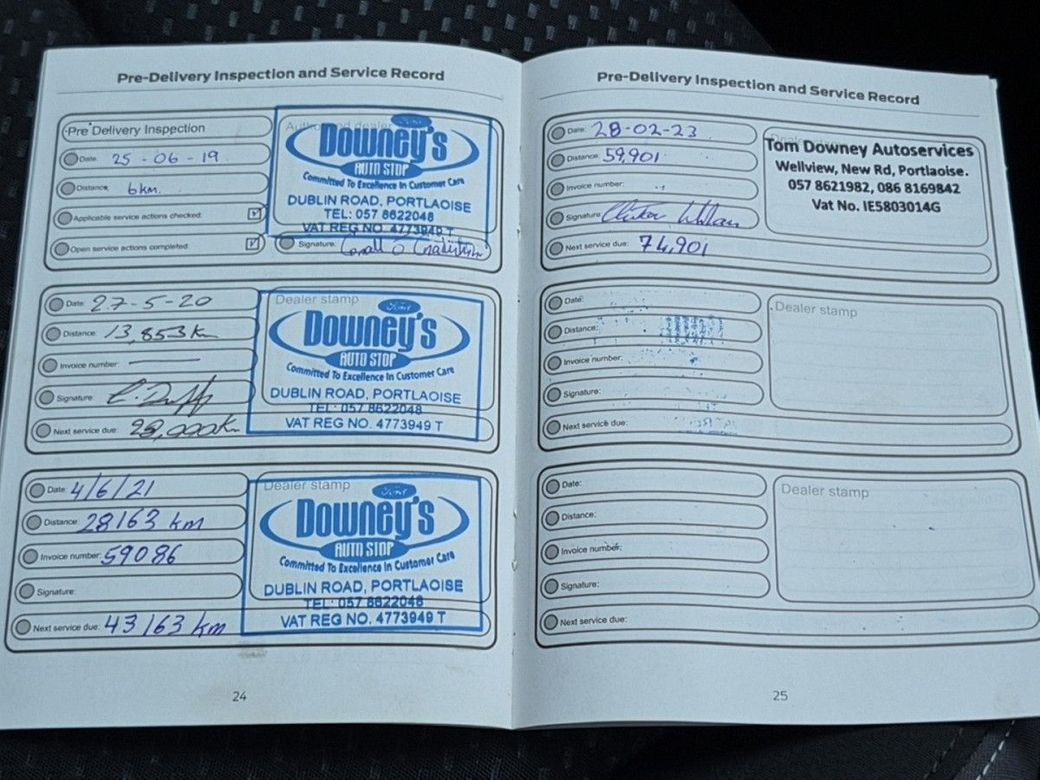 Pre-Delivery Inspection and Service Record
Pre Delivery Inspection
Date: 25-06-19
Distance: 6 km.
Applicable service actions checked:
Open service actions completed:
Ford
Downey's
AUTO STOP
Committed To Excellence In Customer Care
DUBLIN ROAD, PORTLAOISE
TEL: 057 8622048
VAT REG NO. 4773949 T
Signature:
Date: 27-5-20
Distance: 13,853 Km
Invoice number:
Signature:
Next service due: 28,000 Km
Dealer stamp
Ford
Downey's
AUTO STOP
Committed To Excellence In Customer Care
DUBLIN ROAD, PORTLAOISE
TEL: 057 8622048
VAT REG NO. 4773949 T
Date: 4/6/21
Distance: 28163 km
Invoice number: 59086
Signature:
Next service due: 43163 km
Dealer stamp
Ford
Downey's
AUTO STOP
Committed To Excellence In Customer Care
DUBLIN ROAD, PORTLAOISE
TEL: 057 8622048
VAT REG NO. 4773949 T
24
Pre-Delivery Inspection and Service Record
Date: 28-02-23
Distance: 59,901
Invoice number:
Signature:
Next service due: 74,901
Tom Downey Autoservices
Wellview, New Rd, Portlaoise.
057 8621982, 086 8169842
Vat No. IE5803014G
Date:
Distance:
Invoice number:
Signature:
Next service due:
Dealer stamp
Date:
Distance:
Invoice number:
Signature:
Next service due:
Dealer stamp
25